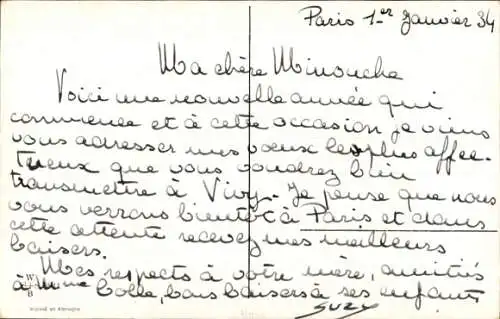 Paris 1er Janvier 34
Ma chère Minouche
Voici une nouvelle année qui
commence et à cette occasion je viens
vous adresser mes voeux les plus affec-
tueux que vous voudrez bien
transmettre à Vivy. Je pense que nous
vous verrons bientôt à Paris et dans
cette attente recevez mes meilleurs
baisers.
Mes respects à votre mère, amitiés
à Mme Colle, bons baisers à ses enfants
Suzy
W
B